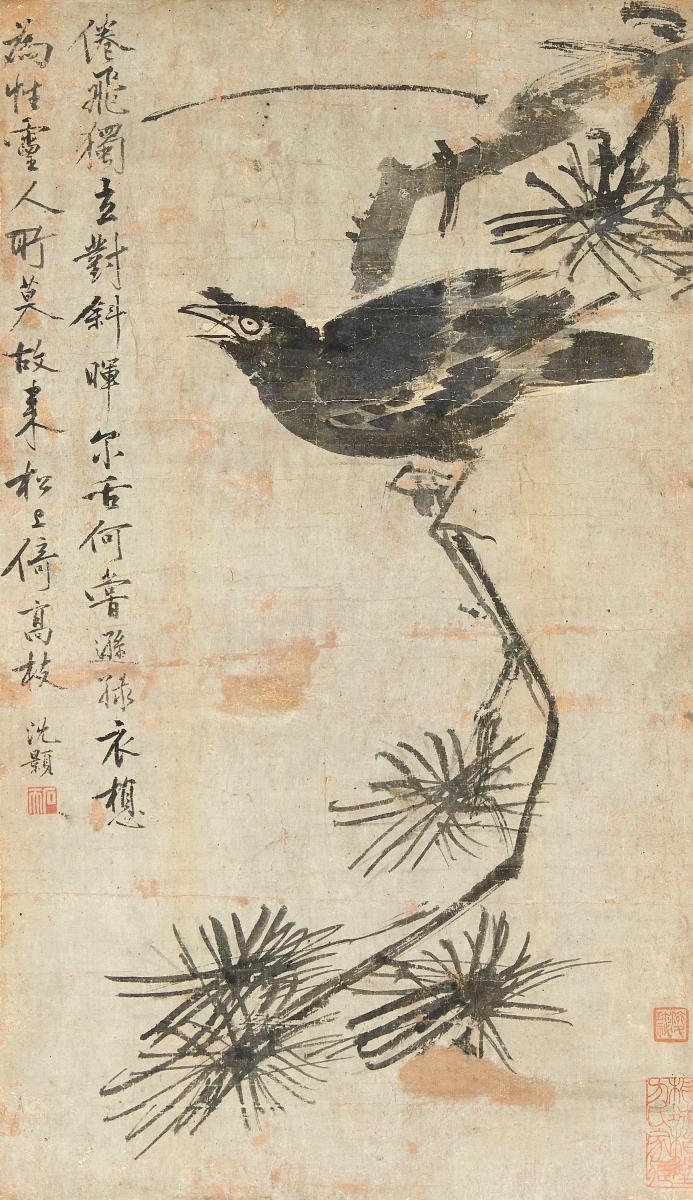 倦飛獨立對斜暉尔舌何嘗遜綠衣想
為性靈人所莫故來松上倚高枝
沈顥